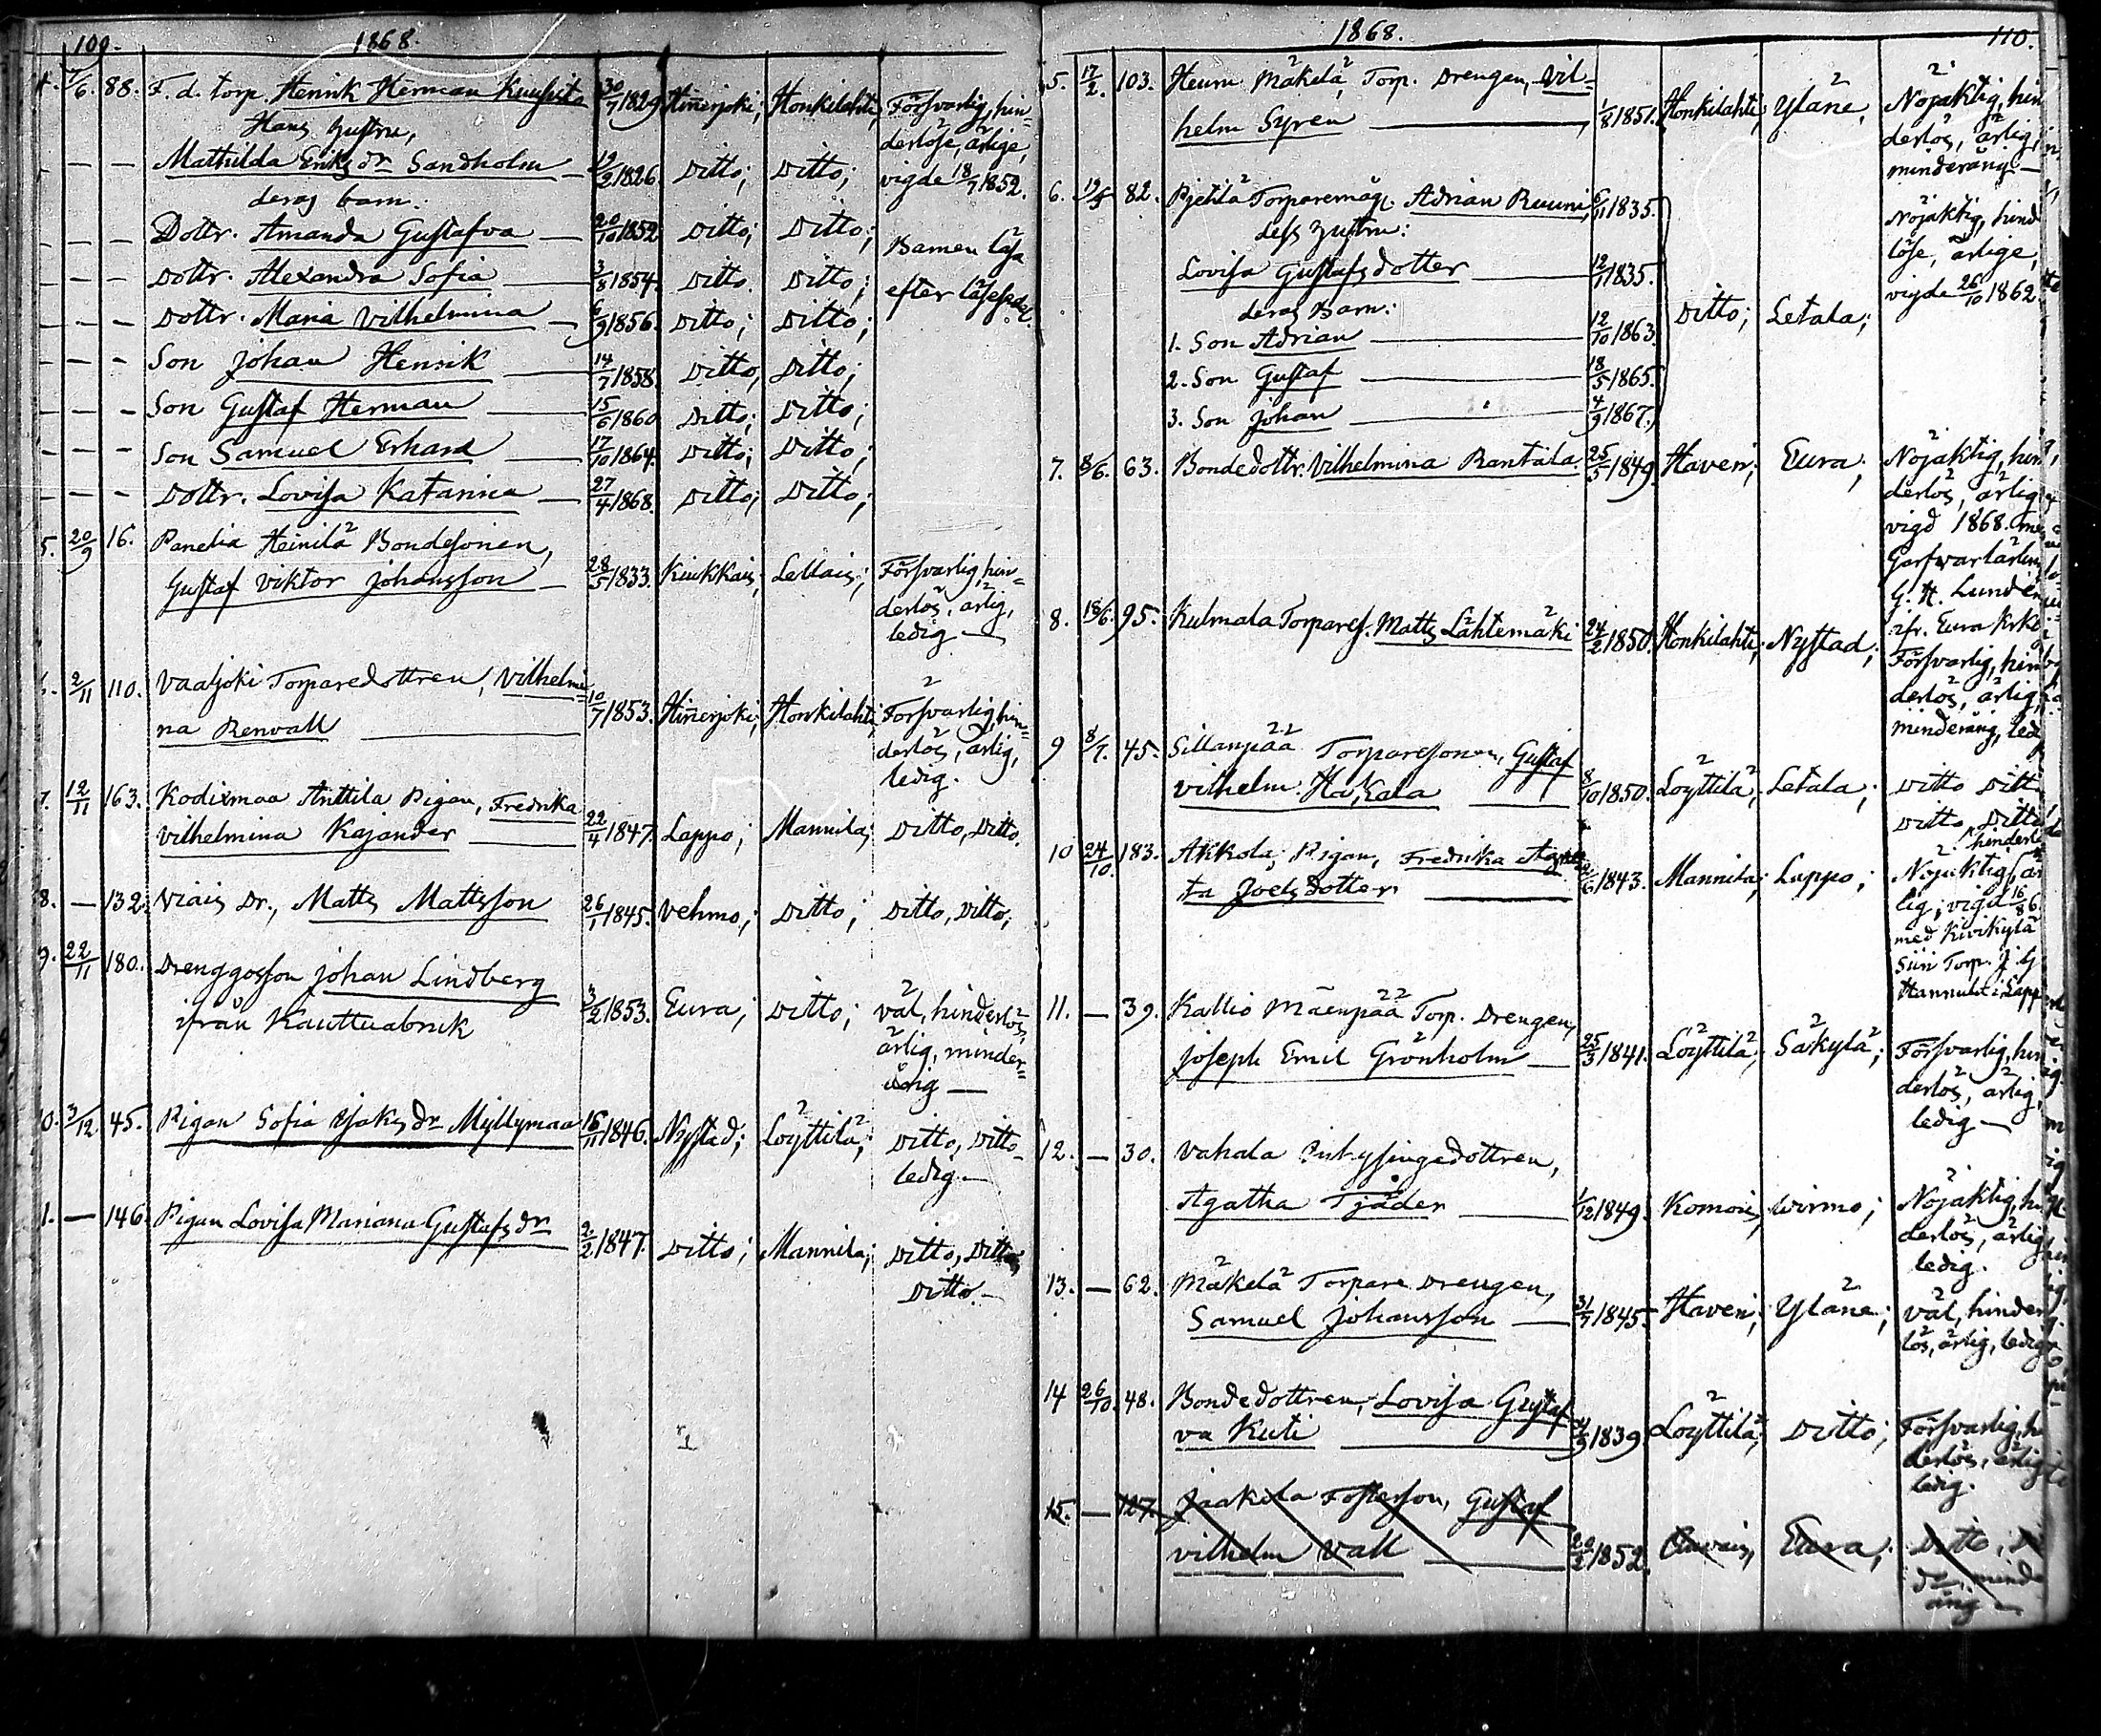 109. 1868.
4. 7/6. 88. F. d. torp. Henrik Herman Kuusisto 30/7 1829 Hinerjoki; Honkilahti; Försvarlig, hin=
Hans hustru, derlöse, ärlige,
— — Mathilda Eriks dr Sandholm — 19/2 1826. Ditto; Ditto; vigde 18/7 1852.
deras barn:
— — — Dottr. Amanda Gustafva — 20/10 1852 Ditto; Ditto; Barnen läsa
— — — Dottr. Alexandra Sofia — 3/8 1854. Ditto. Ditto; efter läsesed.
— — — Dottr. Maria Vilhelmina — 6/9 1856. Ditto; Ditto;
— — — Son Johan Henrik — 14/7 1858. Ditto, Ditto;
— — — Son Gustaf Herman — 15/6 1860 Ditto; Ditto;
— — — Son Samuel Erhard — 17/10 1864. Ditto; Ditto;
— — — Dottr. Lovisa Katarina — 27/4 1868. Ditto; Ditto;
5. 20/9 16. Panelia Heinilä Bondesonen,
Gustaf Viktor Johansson — 28/5 1833. Kiukkais; Lellais; Försvarlig, hin=
derlös, ärlig,
ledig —
6. 2/11 110. Vaaljoki Torparedottren, Vilhelmi=
na Renvall — 10/7 1853. Hinerjoki; Honkilahti; Försvarlig, hin=
derlös, ärlig,
ledig.
7. 12/11 163. Kodixmaa Anttila Pigan, Fredrika
Vilhelmina Kajander — 22/4 1847. Lappo; Mannila; Ditto, Ditto.
8. — 132. Viais Dr., Matts Mattsson 26/1 1845. Vehmo; Ditto; Ditto, Ditto;
9. 22/11 180. Drenggossen Johan Lindberg
ifrån Kauttuabruk 3/2 1853. Eura; Ditto; väl, hinderlös,
ärlig, minder=
årig —
10. 3/12 45. Pigan Sofia Isaks dr Myllymaa 16/11 1846. Nystad; Löyttilä; Ditto, Ditto
ledig. —
1. — 146. Pigan Lovisa Mariana Gustafs dr 2/2 1847. Ditto; Mannila; Ditto, Ditto,
Ditto. —
1868. 110.
5. 17/2. 103. Heurn Mäkelä, Torp. Drengen, Vil=
helm Syren — 1/8 1851. Honkilahti; Yläne, Nöjaktig, hin
derlös, ärlig,
minderårig —
6. 19/5 82. Pjetilä Torparemåg. Adrian Ruuni 6/11 1835.
dess hustru: Nöjaktig, hind
Lovisa Gustafsdotter — 12/1 1835. löse, ärlige,
deras Barn: vigde 26/10 1862
1. Son Adrian — 12/10 1863. Ditto; Letala;
2. Son Gustaf — 18/5 1865.
3. Son Johan — 4/9 1867.
7. 8/6. 63. Bondedottr. Vilhelmina Rantala. 25/5 1849. Haveri; Eura; Nöjaktig, hin
derlös, ärlig
vigd 1868. me
Garfvarlärlin
G. H. Lundén
ifr. Eura Krk
8. 18/6. 95. Kulmala Torpares. Matts Lähtemäki 24/2 1850. Honkilahti; Nystad; Försvarlig, hin
derlös, ärlig,
minderårig, led
9 8/7. 45. Sillanpää Torparesonen, Gustaf
Vilhelm Hakala — 8/10 1850. Löyttilä; Letala; Ditto Ditt
Ditto, Ditto
10 24/10. 183. Akkola, Pigan, Fredrika Aga hinderl
ta Joelsdotter — /6 1843. Mannila; Lappo; Nöjaktig, är
lig; vigd 16/86
med Kivikylä
Siiri Torp. J. G
Hannula i Lapp
11. — 39. Kallio Mäenpää Torp. Drengen,
Joseph Emil Grönholm — 25/3 1841. Löyttilä; Säkylä; Försvarlig, hin
derlös, ärlig,
ledig —
12. — 30. Vahala Inhysingedottren,
Agatha Tjäder — 1/12 1849. Komois, Wirmo; Nöjaktig, hi
derlös, ärlig
ledig.
13. — 62. Mäkelä Torpare Drengen,
Samuel Johansson — 31/7 1845. Haveri; Yläne; väl, hinder
lös, ärlig, ledig
14 26/10. 48. Bondedottren, Lovisa Gustaf
va Kuti — 4/9 1839. Löyttilä; Ditto; Försvarlig, h
derlös, ärlig
ledig.
15. — 127. Jaakola Fosterson, Gustaf
Vilhelm Vall — 22/2 1852. Auvais, Eura; Ditto, Di
do, minde
årig —